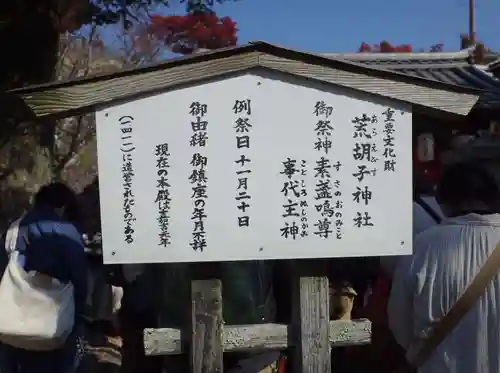 重要文化財
荒胡子神社
あらえびす
御祭神 素盞嗚尊
すさのおのみこと
事代主神
ことしろぬしのかみ
例祭日 十一月二十日
御由緒 御鎮座の年月不詳
現在の本殿は嘉吉元年
(一四一)に造営されたものである